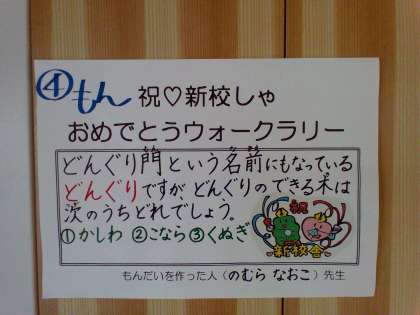 ④もん
祝♡新校しゃ
おめでとうウォークラリー
どんぐり門という名前にもなっている
どんぐりですが どんぐりのできる木は
次のうちどれでしょう。
①かしわ ②こなら ③くぬぎ
祝
新校舎
もんだいを作った人(のむら なおこ)先生